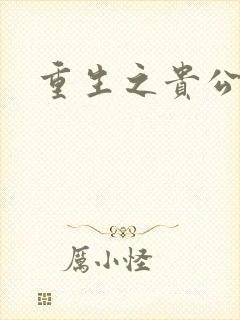 重生之貴公
厲小怪